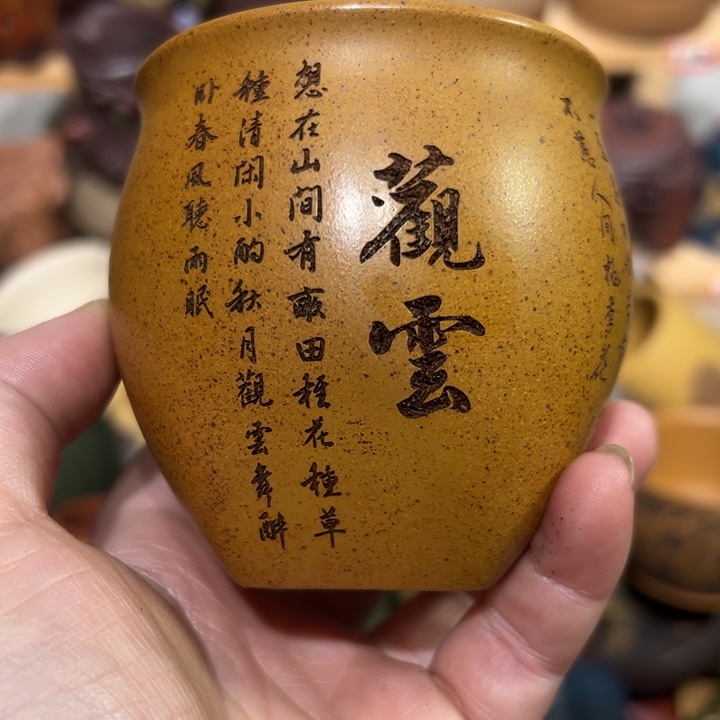 不 人間
觀雲
想在山間有畝田種花種草
種清閑小酌秋月觀雲舞醉
卧春風聽雨眠